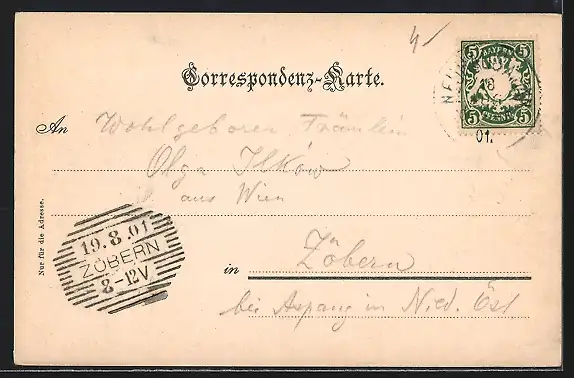 4/-
Correspondenz-Karte.
5 BAYERN 5
5 PFENNIG 5
18
01.
An Wohlgeboren Fräulein
Olga Ilków
aus Wien
Nur für die Adresse.
19.8.01
ZÖBERN
8-12V
in Zöbern
bei Aspang in Nied. Öst